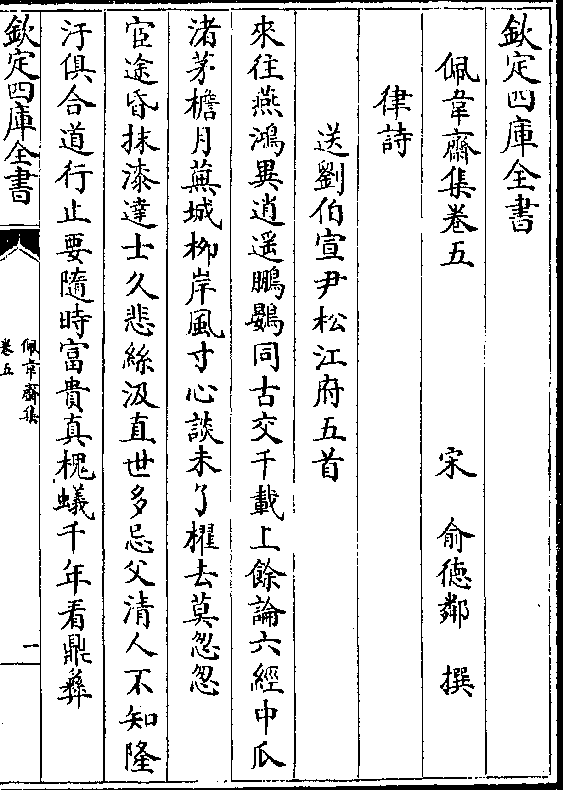 欽定四庫全書
佩韋齋集卷五
宋 俞德鄰 撰
律詩
送劉伯宣尹松江府五首
來往燕鴻異逍遥鵬鷃同古交千載上餘論六經中瓜
渚茅檐月蕪城柳岸風寸心談未了櫂去莫怱怱
宦途昏抹漆達士久悲絲汲直世多忌父清人不知隆
汙俱合道行止要隨時富貴真槐蟻千年看鼎彝
欽定四庫全書
佩韋齋集
卷五
一